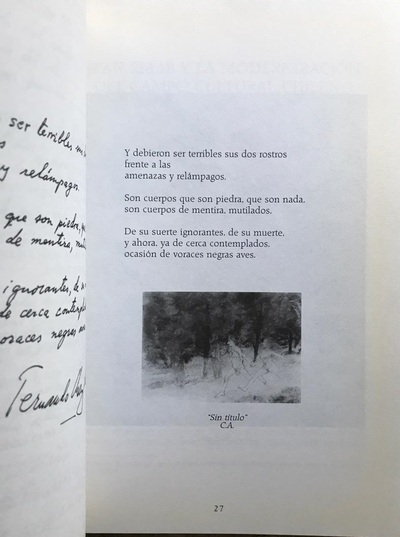 ser terribles
y relámpago.
que son piedra,
de mentira,
ignorantes, de
de cerca
negras
Fernando
Y debieron ser terribles sus dos rostros
frente a las
amenazas y relámpagos.
Son cuerpos que son piedra, que son nada,
son cuerpos de mentira, mutilados.
De su suerte ignorantes, de su muerte,
y ahora, ya de cerca contemplados,
ocasión de voraces negras aves.
"Sin título"
C.A.
27